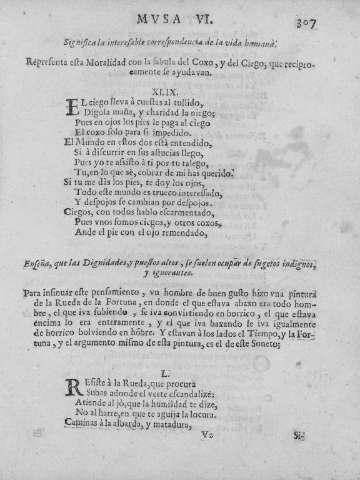 MVSA VI. 307
Significa la interesable correspondencia de la vida humana.
Representa esta Moralidad con la fabula del Coxo, y del Ciego, que recipro-
camente se ayudavan.
XLIX.
EL ciego lleva à cuestas al tullido,
Digola maña, y charidad la niego;
Pues en ojos los pies le paga al ciego
El coxo solo para si impedido.
El Mundo en estos dos està entendido,
Si à discurrir en sus astucias llego,
Pues yo te assisto à ti por tu talego,
Tu, en lo que sè, cobrar de mi has querido.
Si tu me dàs los pies, te doy los ojos,
Todo este mundo es trueco interessado,
Y despojos se cambian por despojos.
Ciegos, con todos hablo escarmentado,
Pues vnos somos ciegos, y otros coxos,
Ande el pie con el ojo remendado,
Enseña, que las Dignidades, y puestos altos, se suelen ocupar de sugetos indignos,
y ignorantes.
Para insinuar este pensamiento, vn hombre de buen gusto hizo vna pintura
de la Rueda de la Fortuna, en donde el que estava abaxo era todo hom-
bre, el que iva subiendo, se iva convirtiendo en borrico, el que estava
encima lo era enteramente, y el que iva baxando se iva igualmente
de borrico bolviendo en hōbre. Y estavan à los lados el Tiempo, y la For-
tuna, y el argumento mismo de esta pintura, es el de este Soneto:
L.
REsiste à la Rueda, que procura
Subas adonde el verte escandalize:
Atiende al jò, que la humildad te dize,
No al harre, en que te aguija la locura.
Caminas à la albarda, y matadura,
V2 Si